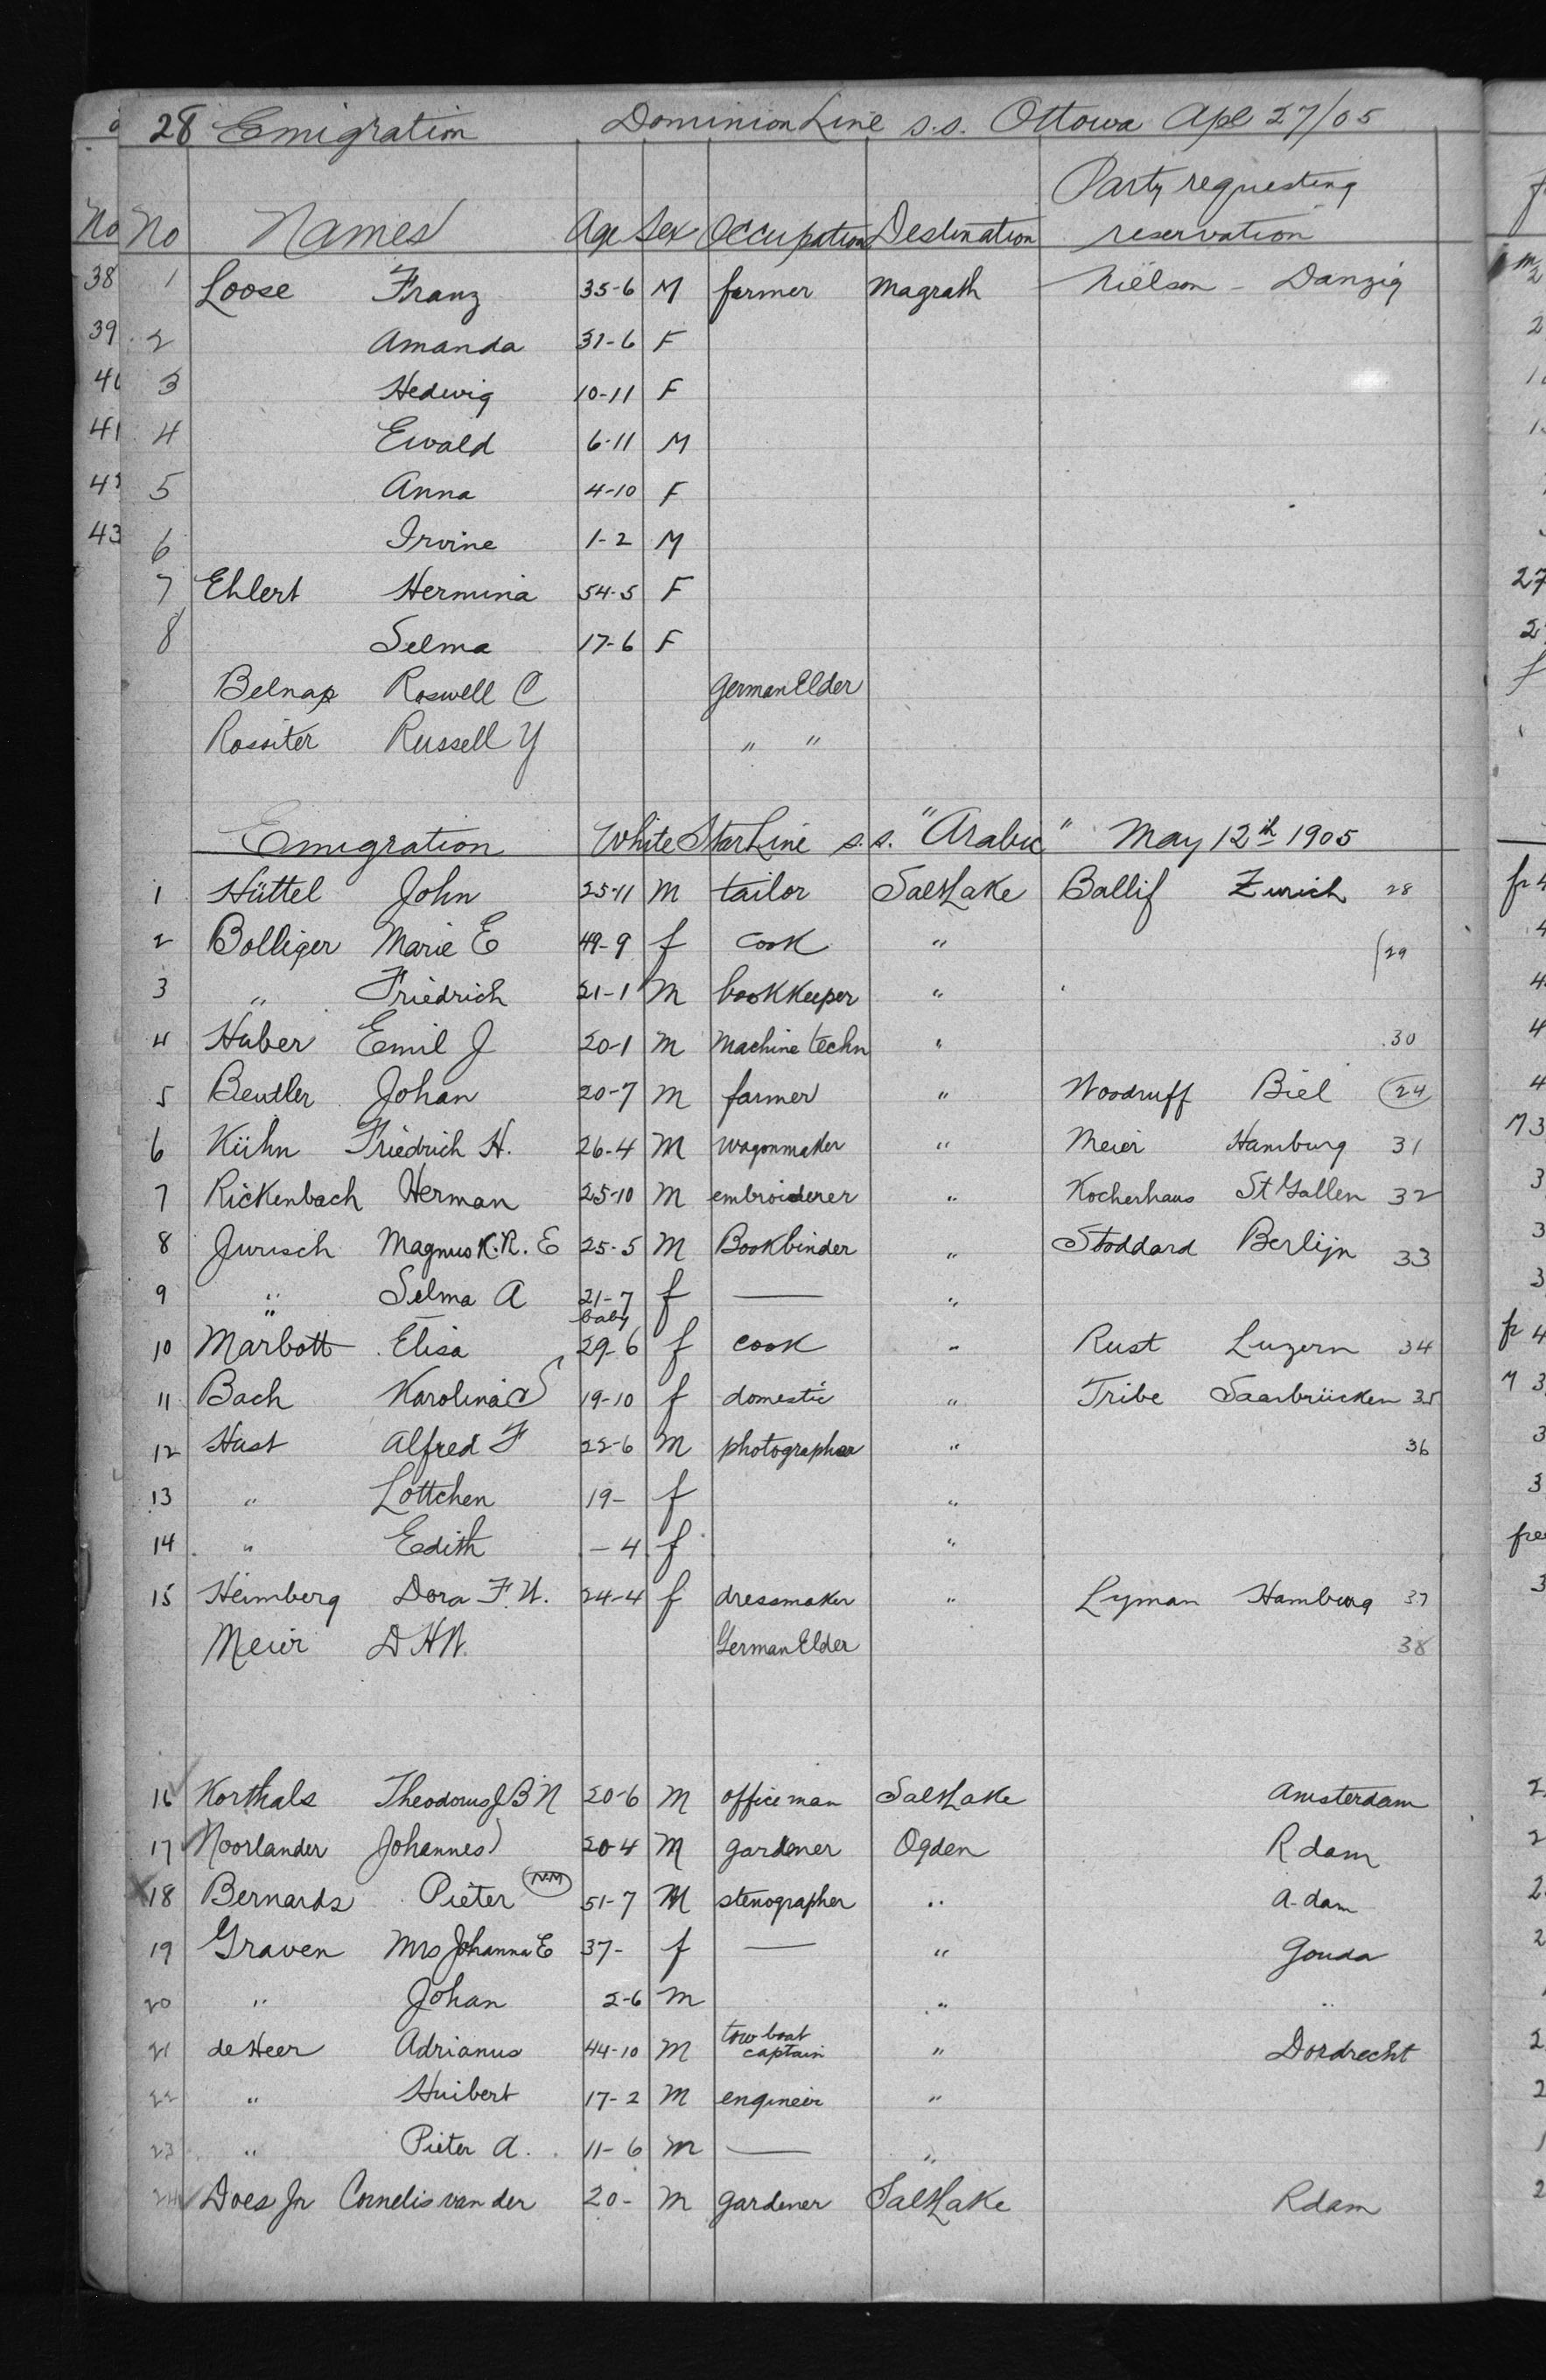 28 Emigration Dominion Line s.s. Ottowa Apl 27/05
No No Names Age Sex Occupation Destination Party requesting reservation
38 1 Loose Franz 35-6 M farmer Magrath Nielson - Danzig
39 2 Amanda 31-6 F
3 Hedwig 10-11 F
41 4 Ewald 6-11 M
5 Anna 4-10 F
43 6 Irvine 1-2 M
7 Ehlert Hermina 54-5 F
8 Selma 17-6 F
Belnap Roswell C German Elder
Rossiter Russell Y " "
Emigration White Star Line s.s. "Arabic" May 12th 1905
1 Hüttel John 25-11 M tailor Salt Lake Ballif Zurich 28
2 Bolliger Marie E 49-9 f cook " 29
3 " Friedrich 21-1 M bookkeeper "
4 Huber Emil J 20-1 M Machine techn " 30
5 Beutler Johan 20-7 M farmer " Woodruff Biel 24
6 Kühn Friedrich H. 26-4 M wagonmaker " Meier Hamburg 31
7 Rickenbach Herman 25-10 M embroiderer " Kocherhans St Gallen 32
8 Jurisch Magnus K. R. E 25-5 M Bookbinder " Stoddard Berlijn 33
9 " Selma A 21-7 f — "
" baby
10 Marbott Elisa 29-6 f cook " Rust Luzern 34
11 Bach Karolina S 19-10 f domestic " Tribe Saarbrücken 35
12 Hast Alfred F 22-6 M photographer " 36
13 " Lottchen 19- f "
14 " Edith -4 f "
15 Heimberg Dora F. W. 24-4 f dressmaker " Lyman Hamburg 37
Meier D H W. German Elder 38
16 Korthals Theodorus J B N 20-6 M office man Salt Lake Amsterdam
17 Noorlander Johannes 20-4 M gardener Ogden R dam
18 Bernards Pieter N.M 51-7 M stenographer " A-dam
19 Graven Mrs Johanna E 37- f — " Gouda
20 " Johan 2-6 M " "
21 de Heer Adrianus 44-10 M tow boat captain " Dordrecht
22 " Huibert 17-2 M engineer "
23 " Pieter A. 11-6 M — "
24 Does Jr Cornelis van der 20- M gardener Salt Lake Rdam